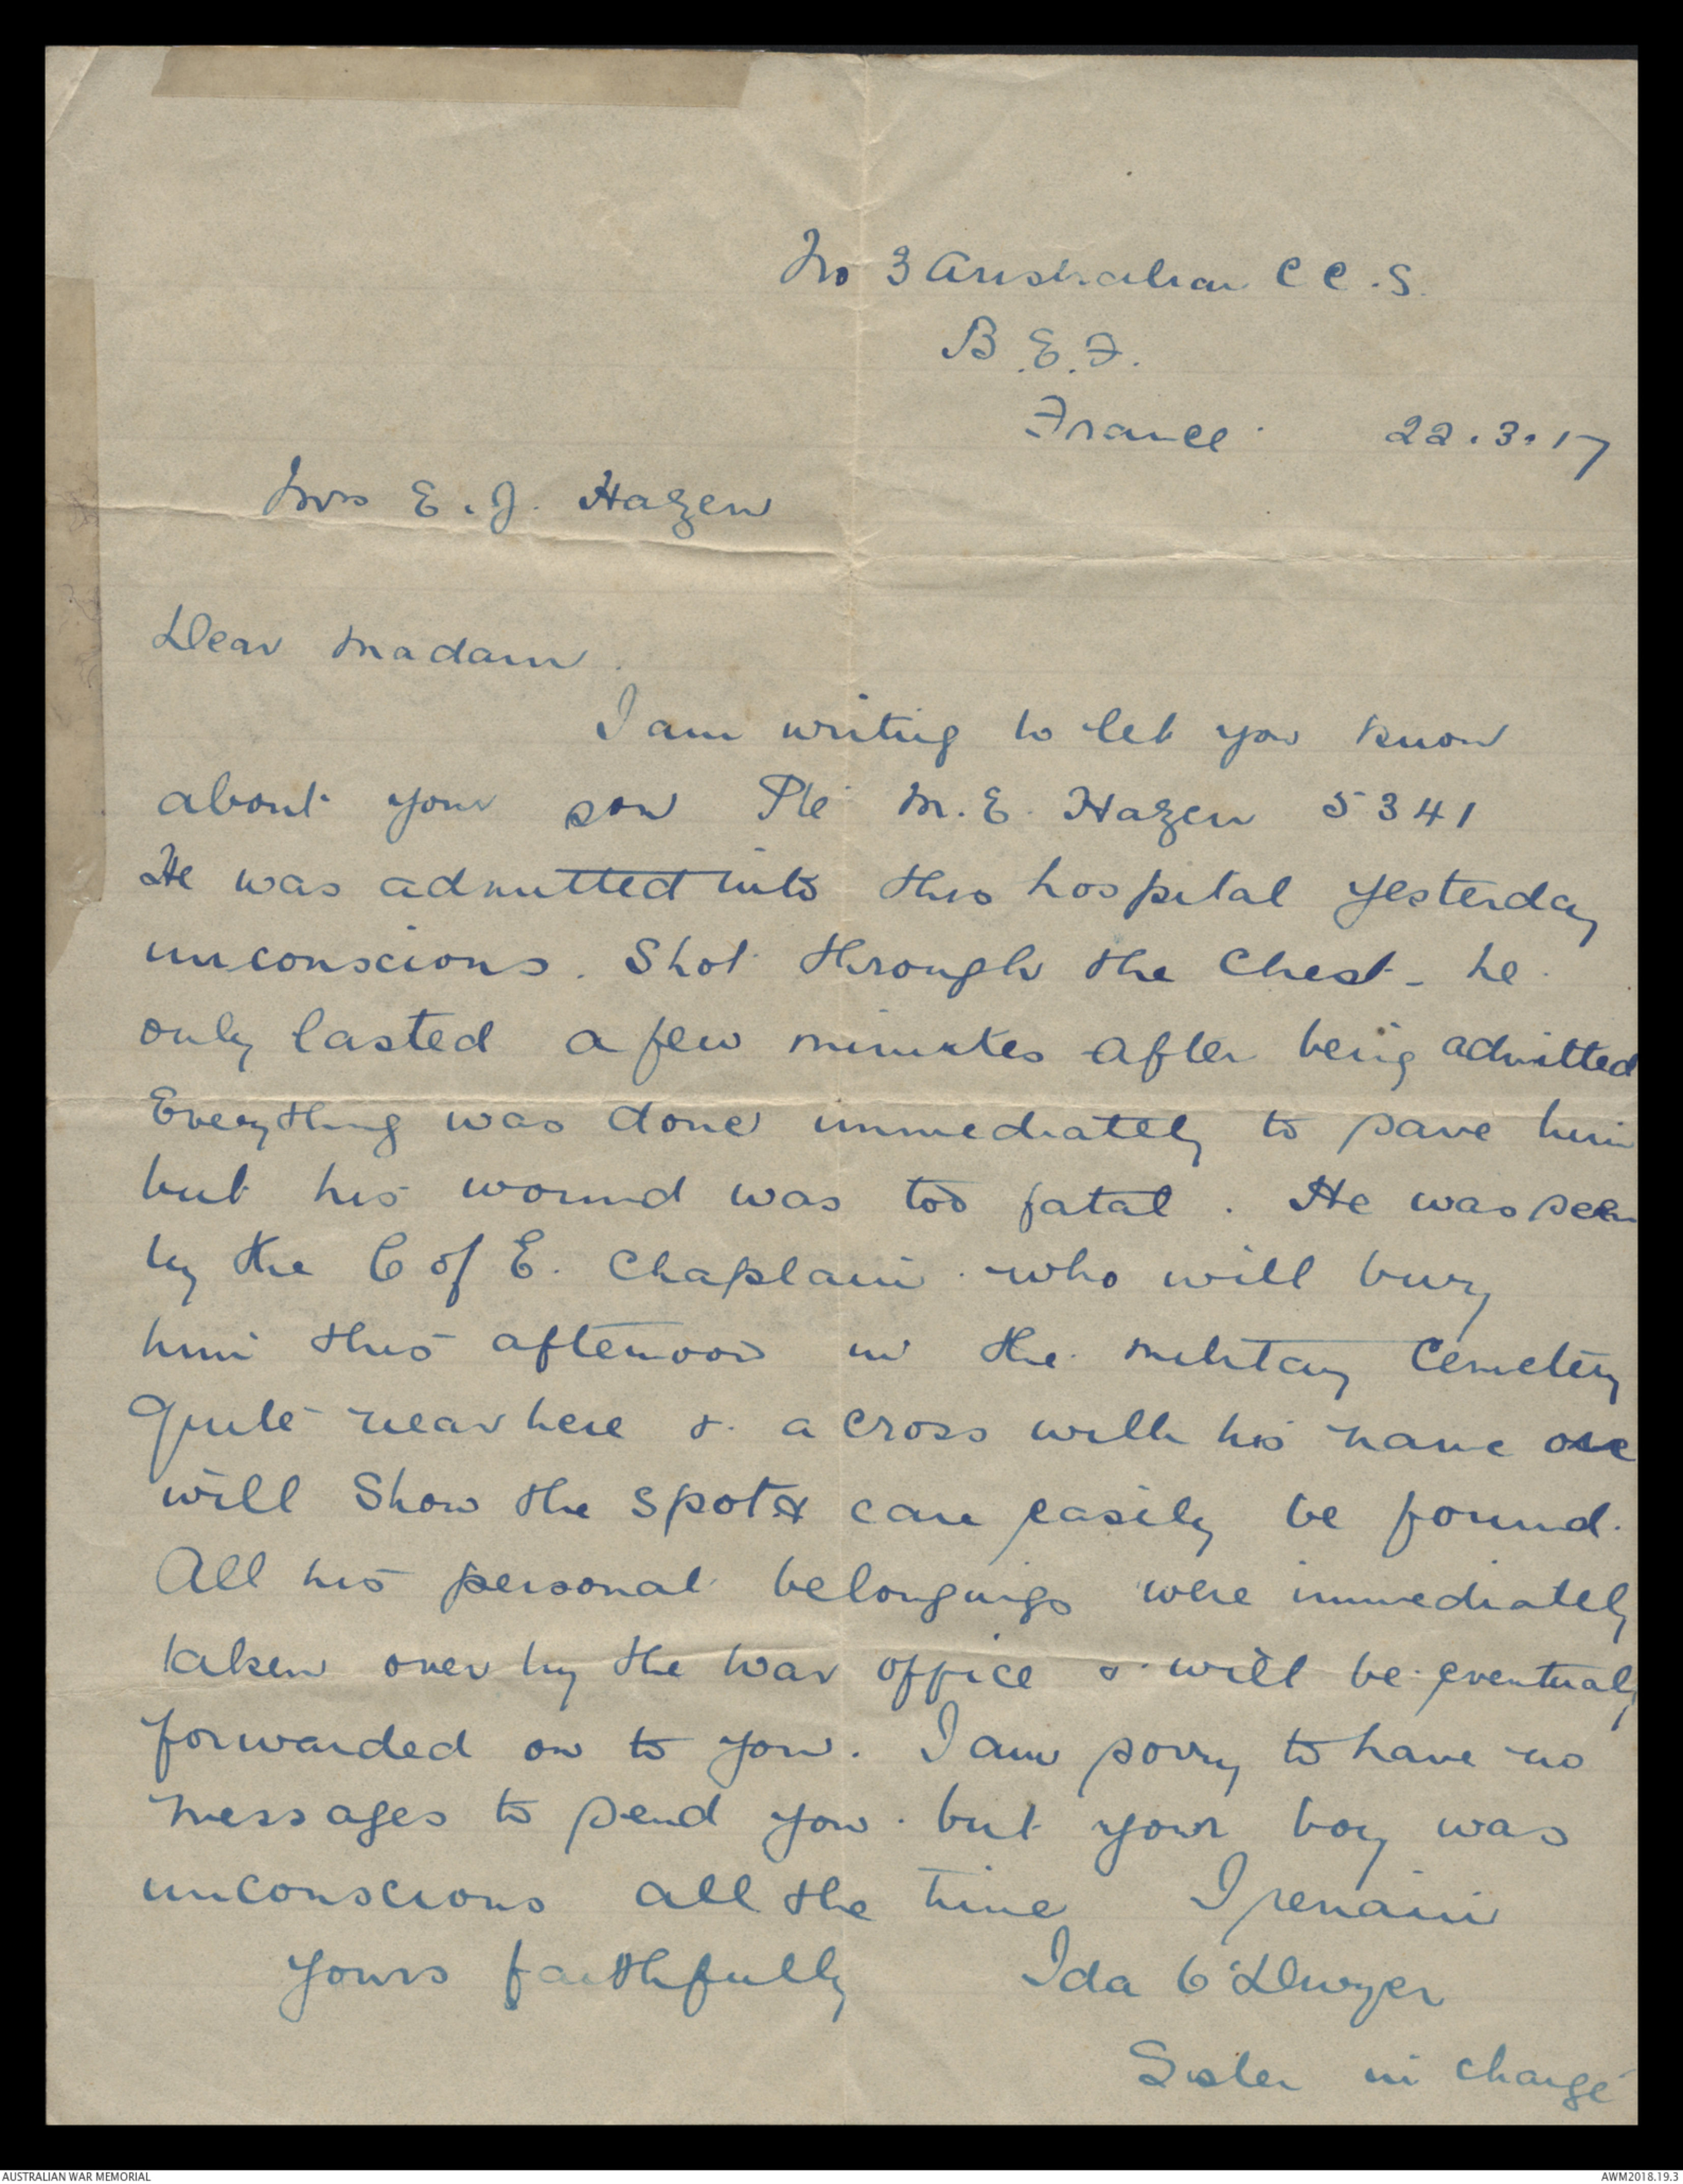 No 3 Australian C C.S.
B.E.F.
France. 22.3.17
Mrs E.J. Hazen
Dear Madam.
I am writing to let you know
about your son Pte M.E. Hazen 5341
He was admitted into this hospital yesterday
unconscious. Shot through the Chest - he
only lasted a few minutes after being admitted
Everything was done immediately to save him
but his wound was too fatal. He was seen
by the C of E. Chaplain. who will bury
him this afternoon in the military Cemetery
Quite near here & a cross with his name on
will Show the spot & can easily be found.
All his personal belongings were immediately
taken over by the War office & will be eventually
forwarded on to you. I am sorry to have no
messages to send you. but your boy was
unconscious all the time I remain
yours faithfully Ida O'Dwyer
Sister in charge
AUSTRALIAN WAR MEMORIAL AWM2018.19.3